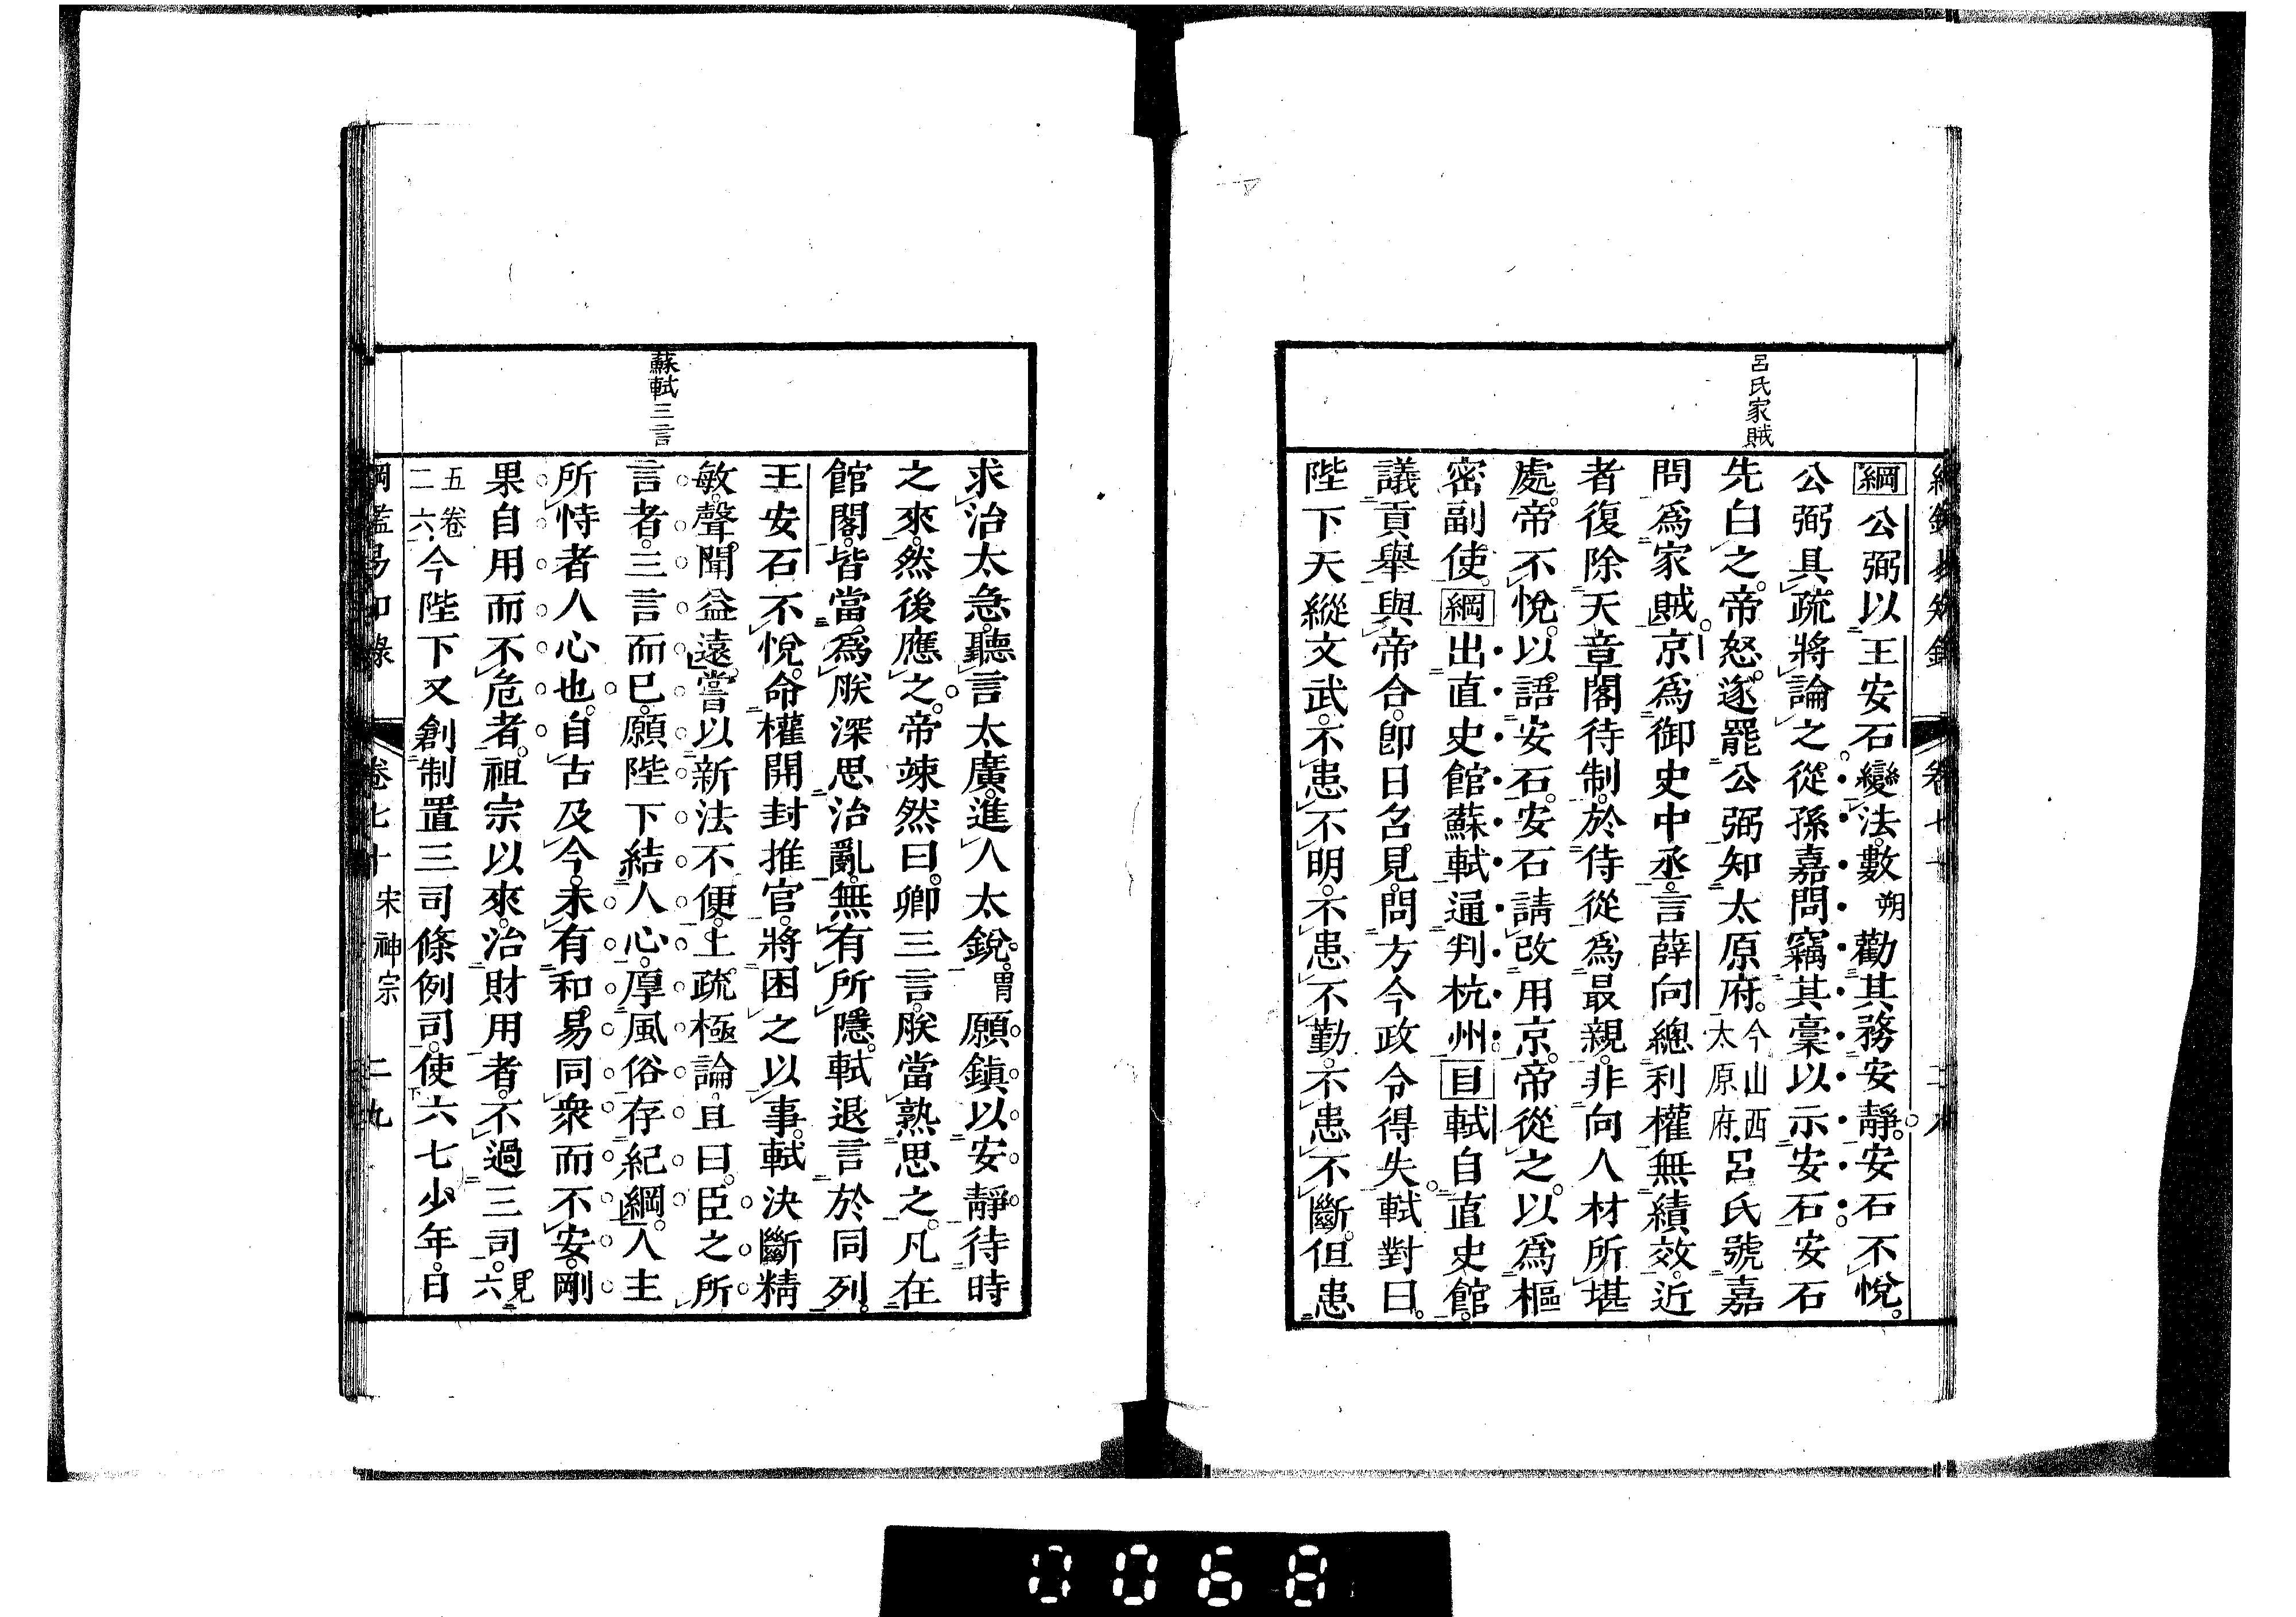 呂氏家賊
綱公弼以王安石變法。數朔勸其務安靜。安石不悅。
公弼具疏將論之。從孫嘉問竊其稾以示安石。安石
先白之。帝怒。遂罷公弼知太原府。今山西太原府。呂氏號嘉
問爲家賊。京爲御史中丞。言薛向總利權無績效。近
者復除天章閣待制。於侍從爲最親。非向人材所堪
處。帝不悅。以語安石。安石請改用京。帝從之。以爲樞
密副使。綱出直史館蘇軾通判杭州。目軾自直史館。
議貢舉與帝合。卽日召見。問方今政令得失。軾對曰。
陛下天縱文武。不患不明。不患不勤。不患不斷。但患
蘇軾三言
求治太急。聽言太廣。進人太銳。胃願鎭以安靜。待時
之來。然後應之。帝竦然曰。卿三言。朕當熟思之。凡在
館閣。皆當爲朕深思治亂。無有所隱。軾退言於同列。
王安石不悅。命權開封推官。將困之以事。軾決斷精
敏。聲聞益遠。嘗以新法不便。上疏極論。且曰。臣之所
言者。三言而已。願陛下結人心。厚風俗。存紀綱。人主
所恃者人心也。自古及今。未有和易同衆而不安。剛
果自用而不危者。祖宗以來。治財用者。不過三司。見六
五卷二六。今陛下又創制置三司條例司。使六七少年。日
綱鑑易知錄 卷七十 宋神宗 二九